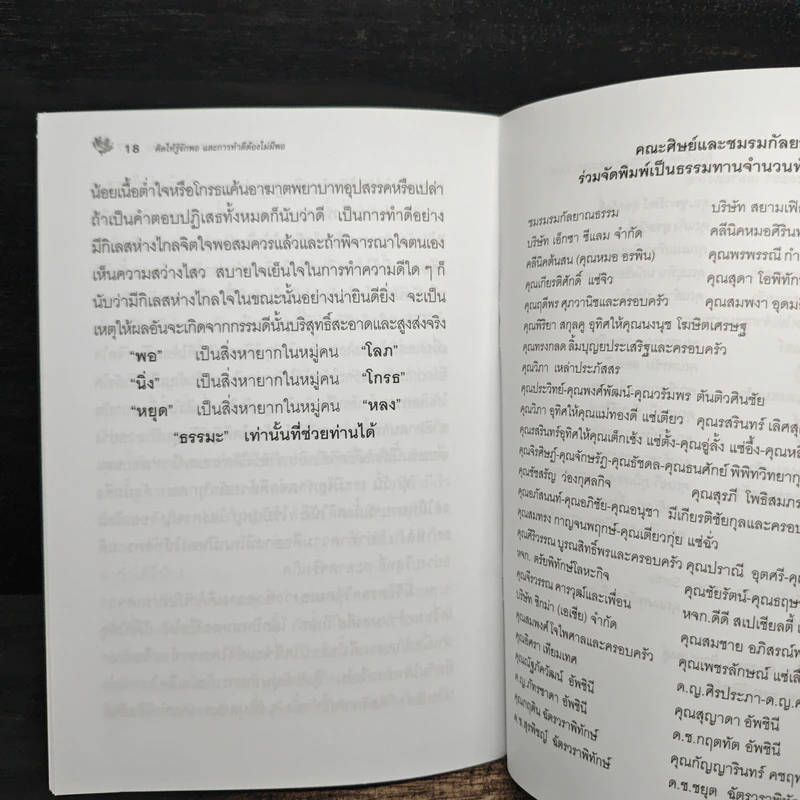 18 คิดให้รู้จักพอ และการทำดีต้องไม่มีพอ
น้อยเนื้อต่ำใจหรือโกรธแค้นอาฆาตพยาบาทอุปสรรคหรือเปล่า
ถ้าเป็นคำตอบปฏิเสธทั้งหมดก็นับว่าดี เป็นการทำดีอย่าง
มีกิเลสห่างไกลจิตใจพอสมควรแล้วและถ้าพิจารณาใจตนเอง
เห็นความสว่างไสว สบายใจเย็นใจในการทำความดีใด ๆ ก็
นับว่ามีกิเลสห่างไกลใจในขณะนั้นอย่างน่ายินดียิ่ง จะเป็น
เหตุให้ผลอันจะเกิดจากกรรมดีนั้นบริสุทธิ์สะอาดและสูงส่งจริง
“พอ” เป็นสิ่งหายากในหมู่คน “โลภ”
“นิ่ง” เป็นสิ่งหายากในหมู่คน “โกรธ”
“หยุด” เป็นสิ่งหายากในหมู่คน “หลง”
“ธรรมะ” เท่านั้นที่ช่วยท่านได้
คณะศิษย์และชมรมกัลย
ร่วมจัดพิมพ์เป็นธรรมทานจำนวน
ชมรมกัลยาณธรรม
บริษัท เอ็กซา ซีแลม จำกัด
คลีนิคต้นสน (คุณหมอ อรพิน)
คุณเกียรติศักดิ์ แซ่จิว
คุณฤดีพร ศุภวานิชและครอบครัว
คุณพิริยา สกุลคู อุทิศให้คุณนงนุช โฆษิตเศรษฐ
คุณทรงกลด ลิ้มบุญยประเสริฐและครอบครัว
คุณวิภา เหล่าประภัสสร
คุณประวิทย์-คุณพงศ์พัฒน์-คุณวรัมพร ตันติวศินชัย
คุณวิภา อุทิศให้คุณแม่ทองดี แซ่เตียว คุณรสรินทร์ เลิศสุ
คุณรสรินทร์อุทิศให้คุณเต็กเซ้ง แซ่ตั้ง-คุณอู่ลั้ง แซ่อึ้ง-คุณ
คุณจิรศิษฎ์-คุณจักษรัฏ-คุณธัชดล-คุณธนศักย์ พิพิทวิทยากุ
คุณชัชสรัญ ว่องกุศลกิจ คุณสุรภี โพธิสมภร
คุณอภัสนนท์-คุณอภิชัย-คุณอนุชา มีเกียรติชัยกุลและครอบ
คุณสมทรง กาญจนพฤกษ์-คุณเตียวกุ่ย แซ่ฉั่ว
คุณศิริวรรณ บูรณสิทธิ์พรและครอบครัว คุณปราณี อุตศรี-คุ
หจก. ตรัยพิทักษ์โลหะกิจ
คุณจีรวรรณ คารวุฒม์และเพื่อน
บริษัท ซิกม่า (เอเชีย) จำกัด
คุณสมพงศ์ โจไพศาลและครอบครัว
คุณธิดา เทียมเทศ
คุณณัฐภัควัฒน์ อัพซินี
ด.ญ.ภัทรชาดา อัพซินี
คุณกฤติน ฉัตรวราพิทักษ์
ด.ช.สุรพิชญ์ ฉัตรวราพิทักษ์
บริษัท สยามเฟ
คลีนิคหมอศิริน
คุณพรพรรณี กำ
คุณสุดา โอพิทัก
คุณสมพงา อุดม
คุณชัยรัตน์-คุณธฤษ
หจก.ดีดี สเปเชียลตี้
คุณสมชาย อภิสรณ์
คุณเพชรลักษณ์ แซ่เลี
ด.ญ.ศิรประภา-ด.ญ.
คุณสุญาดา อัพซินี
ด.ช.กฤตทัต อัพซินี
คุณกัญญารินทร์ คชฤ
ด.ช.ชยุต ฉัตรวราพิทักษ์